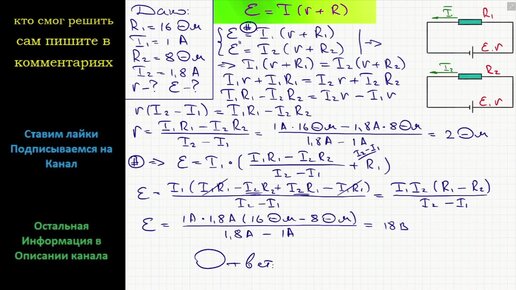 кто смог решить
сам пишите в
комментариях
Ставим лайки
Подписываемся на
Канал
Остальная
Информация в
Описании канала
Дано:
R₁=16 Ом
I₁=1 А
R₂=8 Ом
I₂=1,8 А
r-? ℰ-?
ℰ = I (r + R)
{ ℰ = I₁ (r + R₁)
{ ℰ = I₂ (r + R₂) | ⇒
⇒ I₁ (r + R₁) = I₂ (r + R₂)
I₁r + I₁R₁ = I₂r + I₂R₂
I₁R₁ - I₂R₂ = I₂r - I₁r
r (I₂ - I₁) = I₁R₁ - I₂R₂
r = (I₁R₁ - I₂R₂)/(I₂ - I₁) = (1А·16 Ом - 1,8А·8 Ом)/(1,8А - 1А) = 2 Ом
(#) ⇒ ℰ = I₁ · ((I₁R₁ - I₂R₂)/(I₂ - I₁) + R₁) I₂-I₁
ℰ = I₁(I₁R₁ - I₂R₂ + I₂R₁ - I₁R₁)/(I₂ - I₁) = I₁I₂(R₁ - R₂)/(I₂ - I₁)
ℰ = 1А·1,8А (16 Ом - 8 Ом)/(1,8А - 1А) = 18 В
Ответ:
I R₁
ℰ, r
I R₂
ℰ, r